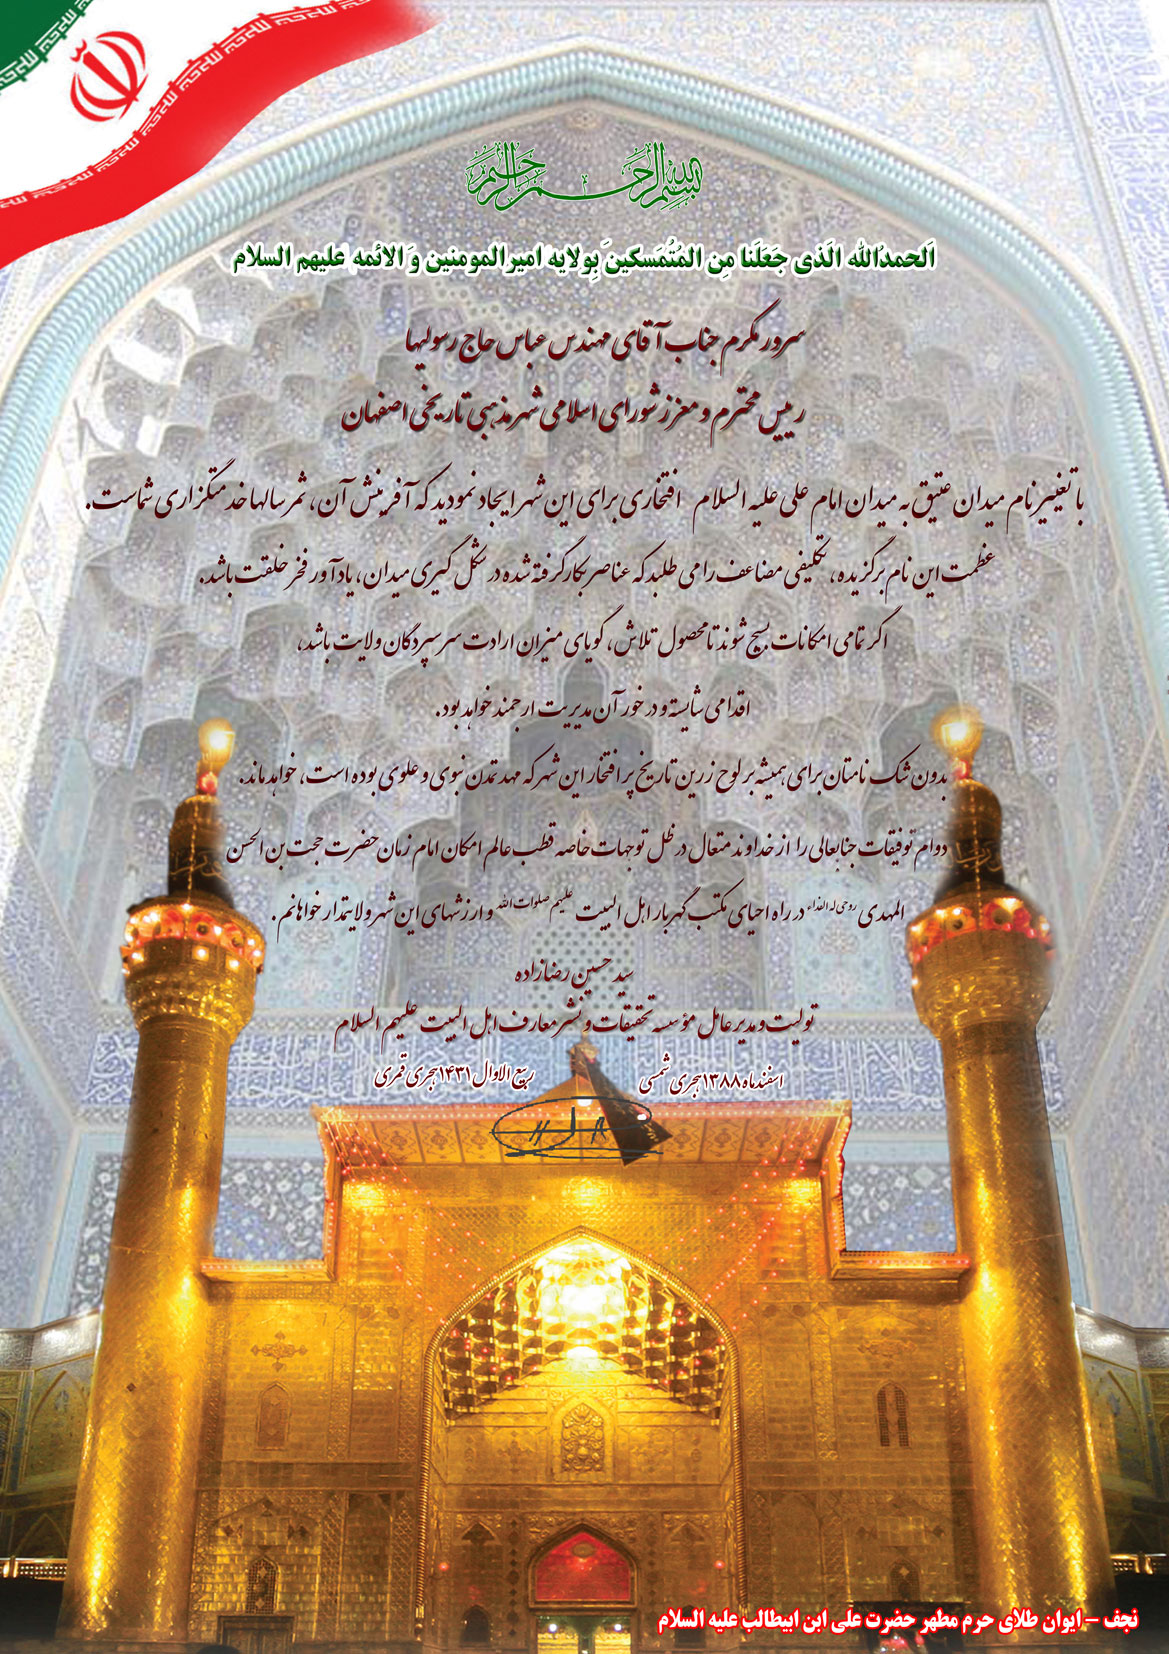 بسم الله الرحمن الرحیم
اَلحمدُالله الَذی جَعَلَنا مِن المُتُمَسکینَ بِولایه امیرالمومنین وَ الائمه علیهم السلام
سرور مکرم جناب آقای مهندس عباس حاج رسولیها
رییس محترم و معزز شورای اسلامی شهر مذهبی تاریخی اصفهان
با تغییر نام میدان عتیق به میدان امام علی علیه السلام افتخاری برای این شهر ایجاد نمودید که آفرینش آن، ثمر سالها خدمتگزاری شماست.
عظمت این نام برگزیده، تکلیفی مضاعف را می طلبد که عناصر بکار گرفته شده در شکل گیری میدان، یادآور فخر خلقت باشد.
اگر تمامی امکانات بسیج شوند تا محصول تلاش، گویای میزان ارادت سرسپردگان ولایت باشد،
اقدامی شایسته و درخور آن مدیریت ارجمند خواهد بود.
بدون شک نامتان برای همیشه بر لوح زرین تاریخ پر افتخار این شهر که مهد تمدن نبوی و علوی بوده است، خواهد ماند.
دوام توفیقات جنابعالی را از خداوند متعال در ظل توجهات خاصه قطب عالم امکان امام زمان حضرت حجت بن الحسن
المهدی روحی له الفداء در راه احیای مکتب گهربار اهل البیت علیهم صلوات الله و ارزشهای این شهر ولایتمدار خواهانم.
سید حسین رضازاده
تولیت و مدیر عامل مؤسسه تحقیقات و نشر معارف اهل البیت علیهم السلام
اسفند ماه ۱۳۸۸ هجری شمسی ربیع الاول ۱۴۳۱ هجری قمری
نجف - ایوان طلای حرم مطهر حضرت علی ابن ابیطالب علیه السلام